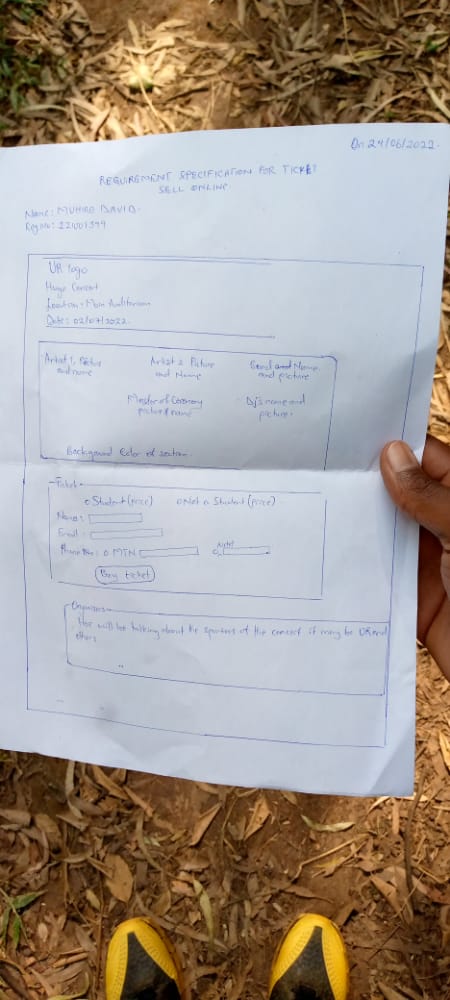 On 24/06/2022.
REQUIREMENT SPECIFICATION FOR TICKET
SELL ONLINE
Name: MUHIRE DAVID.
Reg No:
UR logo
Huge Concert
Location: Main Auditorium
Date: 02/07/2022.
Artist 1, Picture and name
Artist 2 Picture and Name
Band and Name and picture
Master of Ceremony picture & name
Dj's name and picture.
Background Color of section.
Ticket
o Student (price) o Not a Student (price)
Name:
Email:
Phone No: o MTN o
Buy ticket
Organizers
will be talking about the sponsors of the concert it may be UR and others